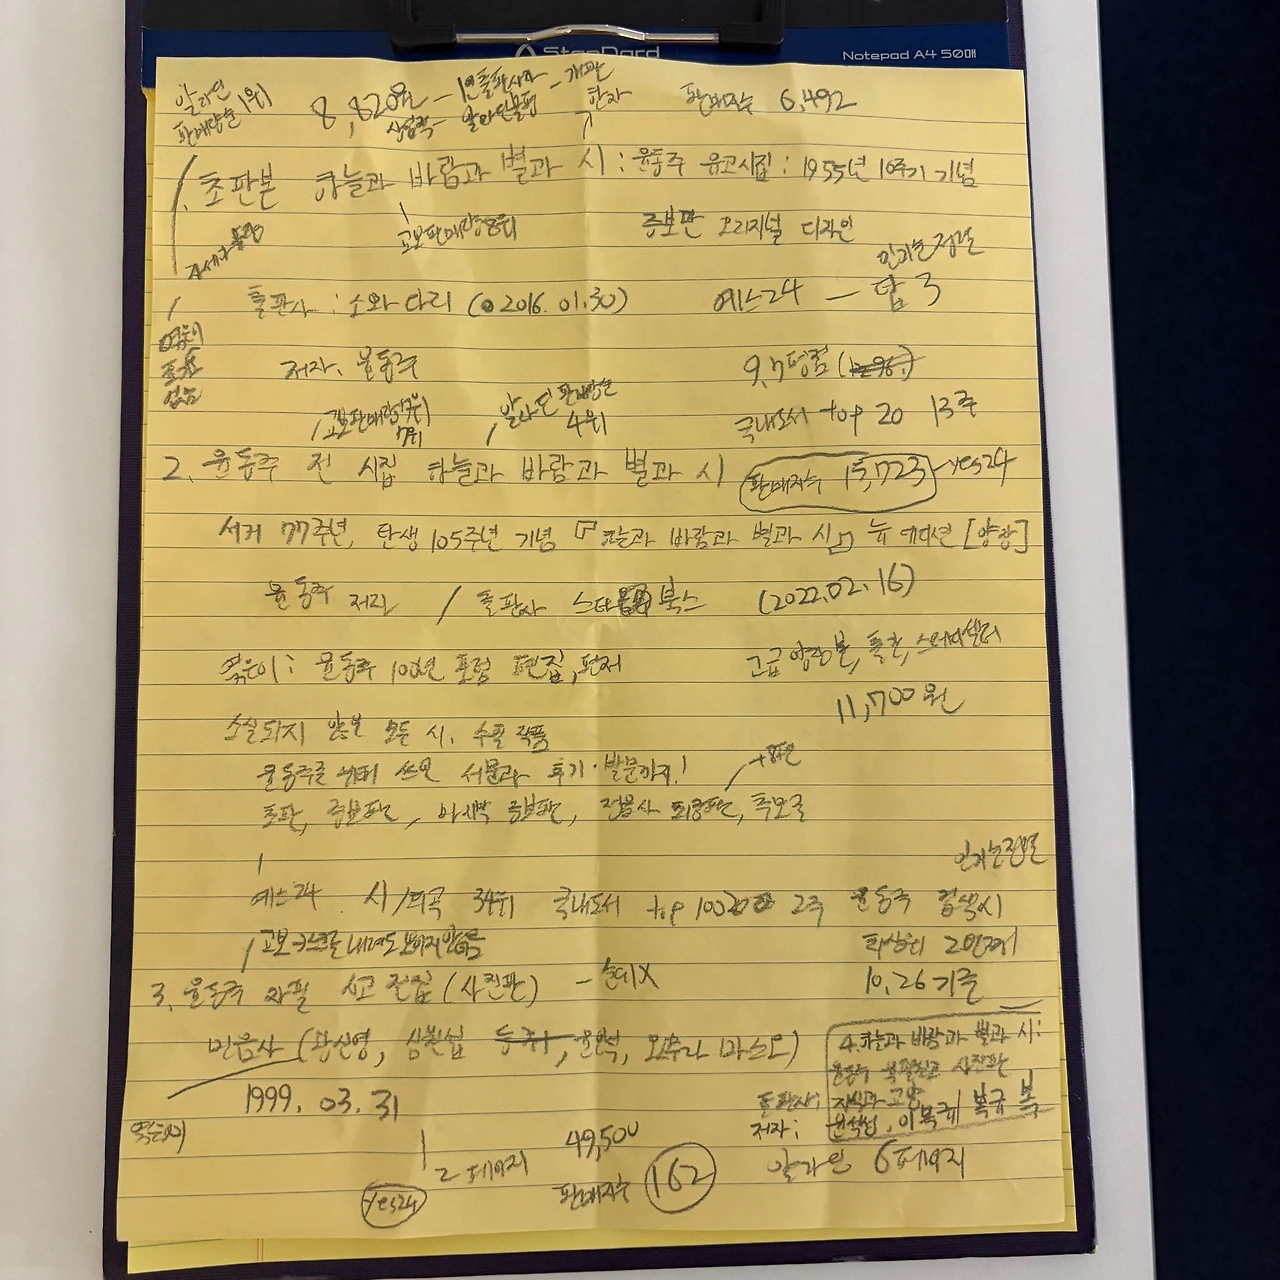 StanDard
Notepad A4 50매
알라딘
판매량순 1위
8,820원 - 1인출판사와 - 개판
상업적 - 알라딘 불명 한자
판매지수 6,492
1. 초판본 하늘과 바람과 별과 시 : 윤동주 유고시집 : 1955년 10주기 기념
교보판매량 8위
증보판 오리지널 디자인
인기순 정렬
출판사 : 소와다리 (2016.01.30)
예스24 - 탑 3
엮은이
없음
저자. 윤동주
9.7평점
교보판매량
7위
알라딘 판매량순
4위
국내도서 top 20 13주
2. 윤동주 전 시집 하늘과 바람과 별과 시
판매지수 15,723 - yes24
서거 77주년, 탄생 105주년 기념 『하늘과 바람과 별과 시』 뉴 에디션 [양장]
윤동주 저자 / 출판사 스타북스 (2022.02.16)
엮은이 : 윤동주 100년 포럼 편집, 편저
고급 양장본, 품절, 스타벅스
11,700원
소실되지 않은 모든 시, 수필 작품
윤동주를 위해 쓰인 서문과 후기·발문까지!
+8편
초판, 증보판, 증보판, 정음사 최종판,
인기순 정렬
예스24 시/희곡 34위 국내도서 top 100 2주 윤동주 검색시
최상위 2번째
10.26 기준
3. 윤동주 자필 시고 전집 (사진판)
민음사 (왕신영, 심원섭, 윤인석, 오무라 마스오)
1999. 03. 31
엮은이
2페이지
yes24
49,500
판매지수 162
4. 하늘과 바람과 별과 시 :
윤동주 육필원고 사진판
출판사 :
저자 : 윤석성,
알라딘 6페이지